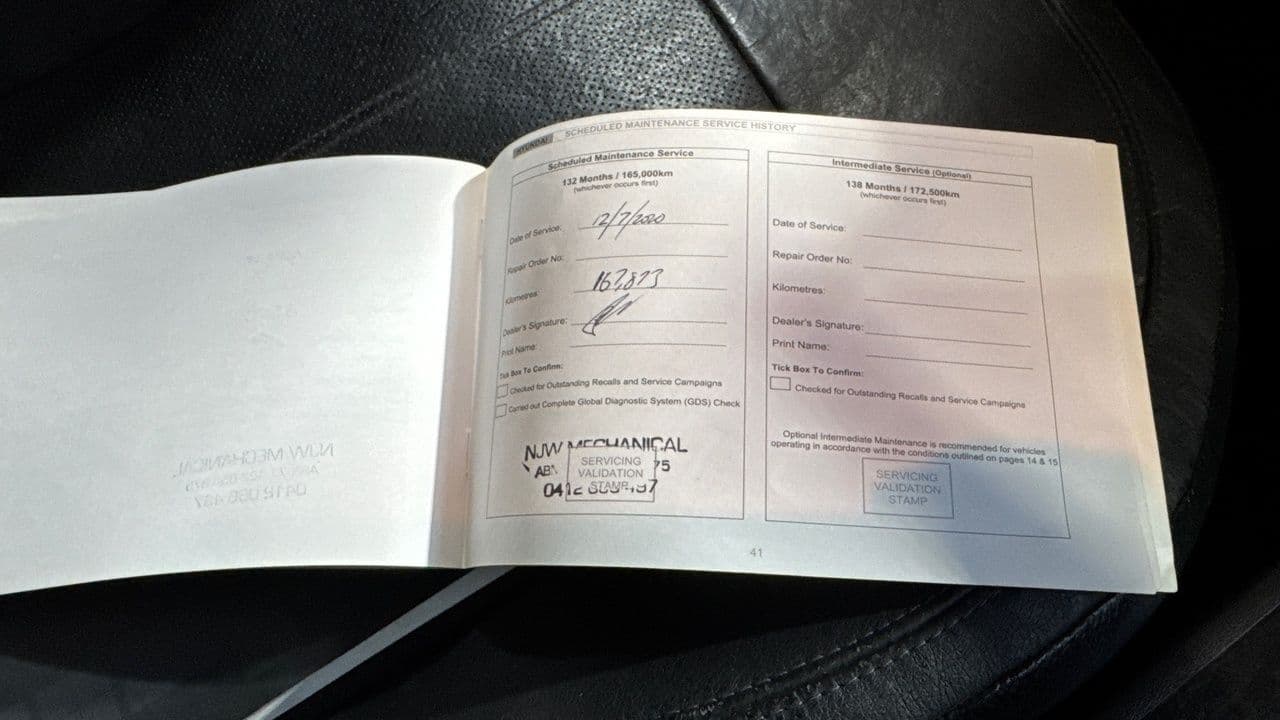 HYUNDAI SCHEDULED MAINTENANCE SERVICE HISTORY
Scheduled Maintenance Service
132 Months / 165,000km
(whichever occurs first)
Date of Service: 12/7/2020
Repair Order No:
Kilometres: 167,873
Dealer's Signature:
Print Name:
Tick Box To Confirm:
Checked for Outstanding Recalls and Service Campaigns
Carried out Complete Global Diagnostic System (GDS) Check
NJW MECHANICAL
SERVICING
VALIDATION
STAMP
ABN 75
0412
Intermediate Service (Optional)
138 Months / 172,500km
(whichever occurs first)
Date of Service:
Repair Order No:
Kilometres:
Dealer's Signature:
Print Name:
Tick Box To Confirm:
Checked for Outstanding Recalls and Service Campaigns
Optional Intermediate Maintenance is recommended for vehicles
operating in accordance with the conditions outlined on pages 14 & 15
SERVICING
VALIDATION
STAMP
41